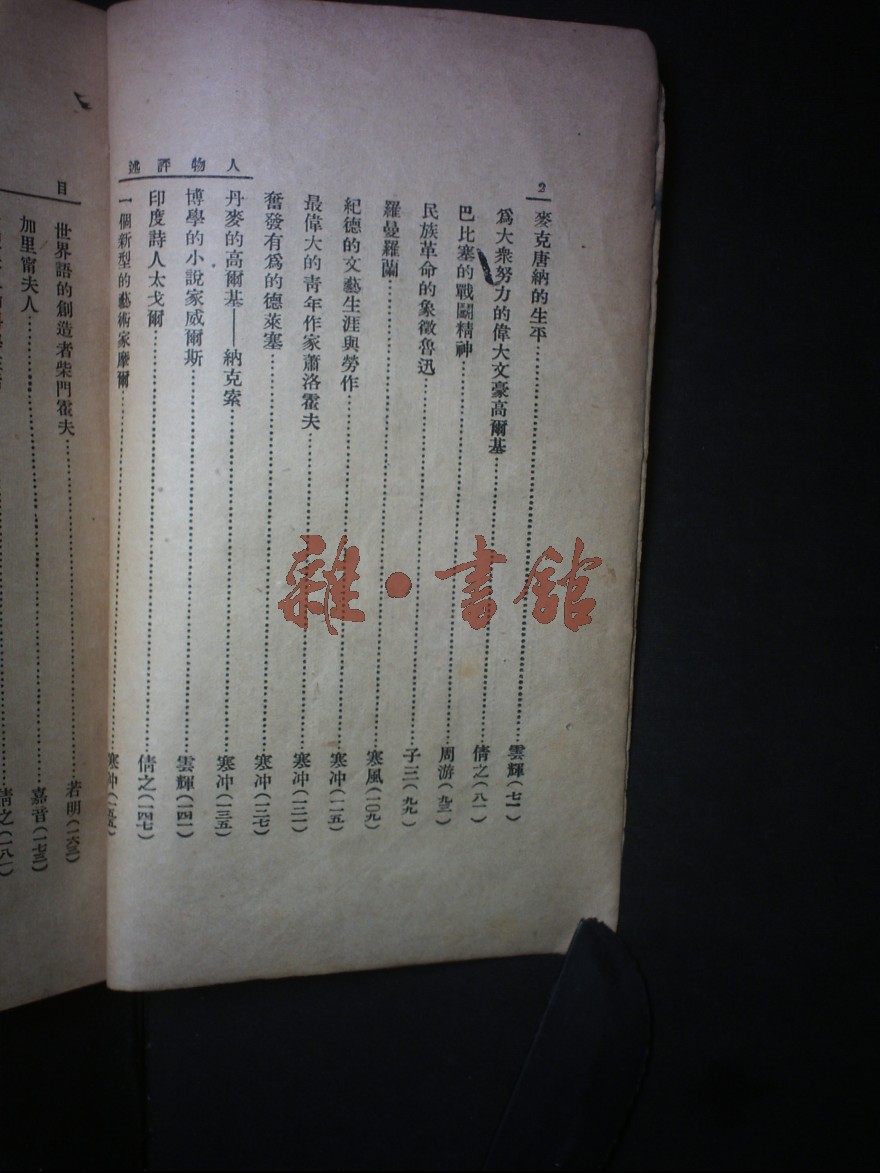 人物評述
2
麥克唐納的生平……雲輝(七一)
為大衆努力的偉大文豪高爾基……倩之(八一)
巴比塞的戰鬭精神……周游(九三)
民族革命的象徵魯迅……子三(九九)
羅曼羅蘭……寒風(一〇九)
紀德的文藝生涯與勞作……寒冲(一一五)
最偉大的青年作家蕭洛霍夫……寒冲(一二一)
奮發有為的德萊塞……寒冲(一二七)
丹麥的高爾基——納克索……寒冲(一三五)
博學的小說家威爾斯……雲輝(一四一)
印度詩人太戈爾……倩之(一四七)
一個新型的藝術家摩爾……寒冲(一五五)
目
世界語的創造者柴門霍夫……若明(一六三)
加里甯夫人……嘉音(一七三)
倩之(一八一)
雜·書館